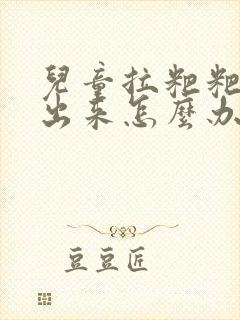 兒童拉粑粑
出来怎麼办
豆豆匠